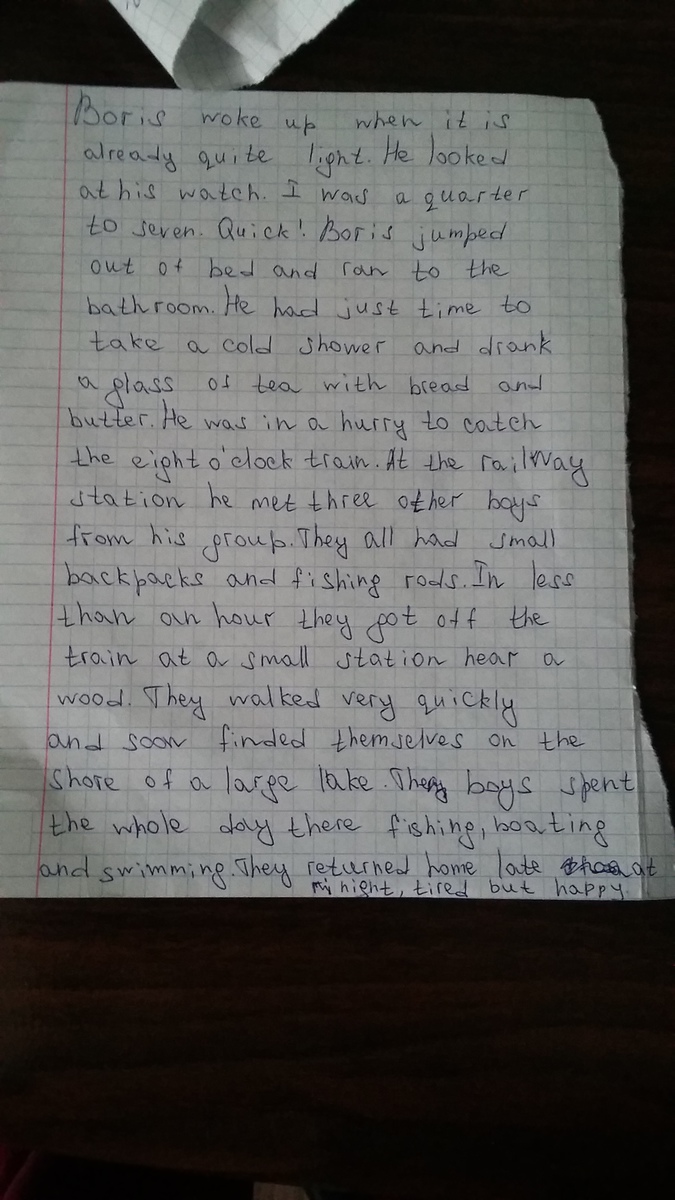 Boris woke up when it is
already quite light. He looked
at his watch. I was a quarter
to seven. Quick! Boris jumped
out of bed and ran to the
bathroom. He had just time to
take a cold shower and drank
a glass of tea with bread and
butter. He was in a hurry to catch
the eight o'clock train. At the railway
station he met three other boys
from his group. They all had small
backpacks and fishing rods. In less
than an hour they got off the
train at a small station near a
wood. They walked very quickly
and soon finded themselves on the
shore of a large lake. The boys spent
the whole day there fishing, boating
and swimming. They returned home late at
night, tired but happy.